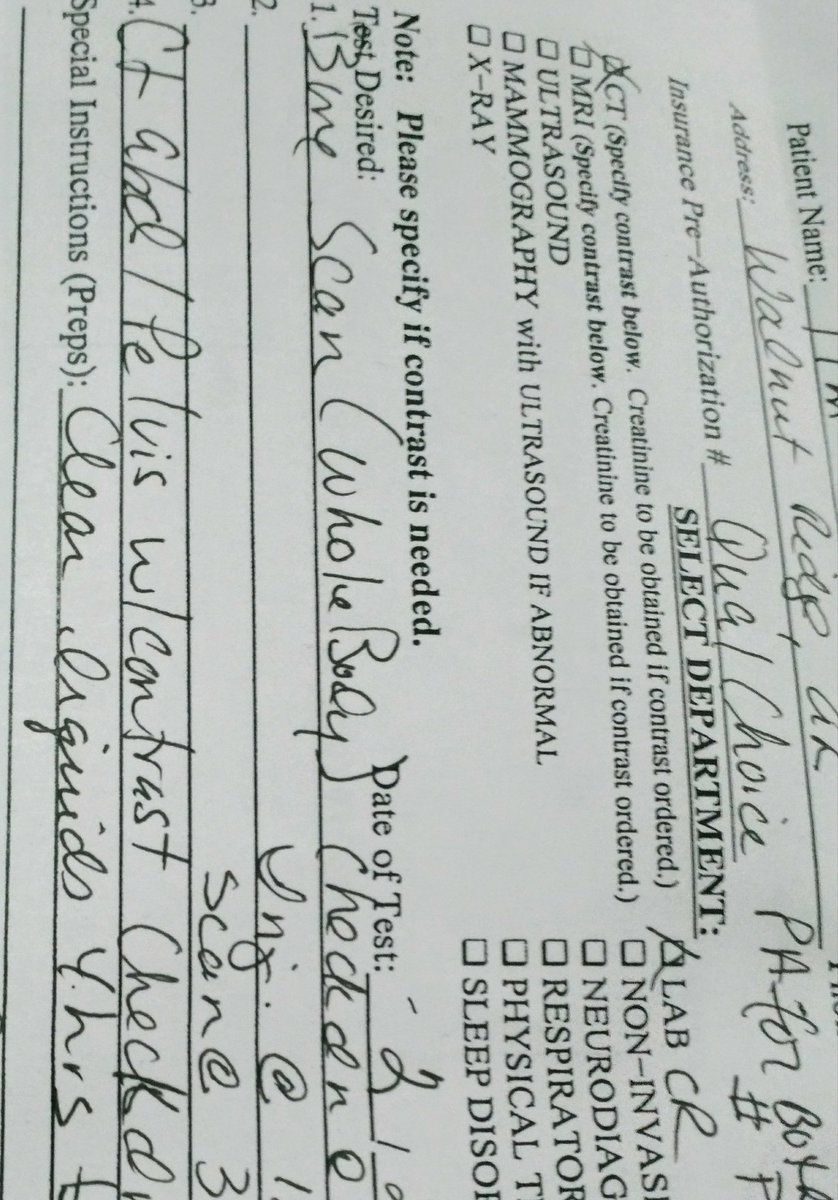 Patient Name:
Address: Walnut Ridge, AR
Insurance Pre-Authorization # Dual Choice PA for Both
#
SELECT DEPARTMENT:
☒ CT (Specify contrast below. Creatinine to be obtained if contrast ordered.)
☐ MRI (Specify contrast below. Creatinine to be obtained if contrast ordered.)
☐ ULTRASOUND
☐ MAMMOGRAPHY with ULTRASOUND IF ABNORMAL
☐ X-RAY
☒ LAB CR
☐ NON-INVAS
☐ NEURODIAG
☐ RESPIRATOR
☐ PHYSICAL T
☐ SLEEP DISO
Note: Please specify if contrast is needed.
Test Desired: Date of Test: 2
1. Bone Scan (Whole Body) Check
2. Inj. @
3. Scan @ 3
4. Ct abd/Pelvis w/contrast Check
Special Instructions (Preps): Clear liquids 4 hrs